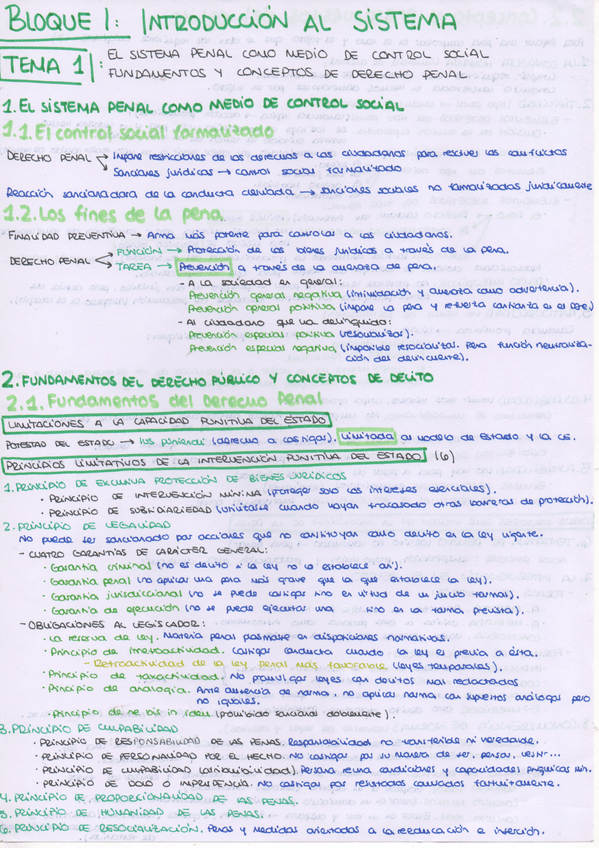 BLOQUE 1: INTRODUCCIÓN AL SISTEMA
TEMA 1: EL SISTEMA PENAL COMO MEDIO DE CONTROL SOCIAL
FUNDAMENTOS Y CONCEPTOS DE DERECHO PENAL
1. EL SISTEMA PENAL COMO MEDIO DE CONTROL SOCIAL
1.1. El control social formalizado
DERECHO PENAL → Impone restricciones de los derechos a los ciudadanos para resolver los conflictos
Sanciones jurídicas → control social formalizado
Reacción sancionadora de la conducta desviada → sanciones sociales no formalizadas jurídicamente
1.2. Los fines de la pena.
FINALIDAD PREVENTIVA → Arma más potente para controlar a los ciudadanos.
DERECHO PENAL FUNCIÓN → Protección de los bienes jurídicos a través de la pena.
TAREA → Prevención a través de la amenaza de pena.
- A la sociedad en general:
Prevención general negativa (intimidación y amenaza como advertencia).
Prevención general positiva (impone la pena y refuerza confianza en el
- Al ciudadano que ha delinquido:
Prevención especial positiva (resocializar).
Prevención especial negativa (imposible resocializar. Pena función neutraliza-
ción del delincuente).
2. FUNDAMENTOS DEL DERECHO PÚBLICO Y CONCEPTOS DE DELITO
2.1. Fundamentos del Derecho Penal
LIMITACIONES A LA CAPACIDAD PUNITIVA DEL ESTADO
POTESTAD DEL ESTADO → Ius puniendi (derecho a castigar). Limitada al modelo de Estado y la CE.
PRINCIPIOS LIMITATIVOS DE LA INTERVENCIÓN PUNITIVA DEL ESTADO (6)
1. PRINCIPIO DE EXCLUSIVA PROTECCIÓN DE BIENES JURÍDICOS
· PRINCIPIO DE INTERVENCIÓN MÍNIMA (proteger solo los intereses esenciales).
· PRINCIPIO DE SUBSIDIARIEDAD (utilizarse cuando hayan fracasado otras barreras de protección).
2. PRINCIPIO DE LEGALIDAD
No puede ser sancionado por acciones que no constituyan como delito en la ley vigente.
- CUATRO GARANTÍAS DE CARÁCTER GENERAL:
· Garantía criminal (no es delito si la ley no lo establece así).
· Garantía penal (no aplicar una pena más grave que la que establece la ley).
· Garantía jurisdiccional (no se puede castigar sino en virtud de un juicio formal).
· Garantía de ejecución (no se puede ejecutar una sino en la forma prevista).
- OBLIGACIONES AL LEGISLADOR:
· La reserva de ley. Materia penal plasmarse en disposiciones normativas.
· Principio de irretroactividad. Castigar conducta cuando la ley es previa a ésta.
- Retroactividad de la ley penal más favorable (leyes temporales).
· Principio de taxatividad. No promulgar leyes con delitos mal redactados.
· Principio de analogía. Ante ausencia de norma, no aplicar norma con supuestos análogos pero
no iguales.
· Principio de ne bis in idem (prohibido sancionar doblemente).
3. PRINCIPIO DE CULPABILIDAD
· PRINCIPIO DE RESPONSABILIDAD DE LAS PENAS. Responsabilidad no transferible ni heredable.
· PRINCIPIO DE PERSONALIDAD POR EL HECHO. No castigar por su manera de ser, pensar, vestir...
· PRINCIPIO DE CULPABILIDAD (atribuibilidad). Persona reúna condiciones y capacidades psíquicas mín.
· PRINCIPIO DE DOLO O IMPRUDENCIA. No castigar por resultados causados fortuitamente.
4. PRINCIPIO DE PROPORCIONALIDAD DE LAS PENAS.
5. PRINCIPIO DE HUMANIDAD DE LAS PENAS.
6. PRINCIPIO DE RESOCIALIZACIÓN. Penas y medidas orientadas a la reeducación e inserción.